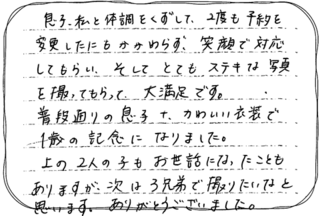 息子、私と体調をくずして、2度も予約を
変更したにもかかわらず、笑顔で対応
してもらい、そしてとてもステキな写真
を撮ってもらって、大満足です。
普段通りの息子+、かわいい衣装で
1歳の記念になりました。
上の2人の子もお世話になったことも
ありますが、次は3兄弟で撮りたいなと
思います。ありがとうございました。